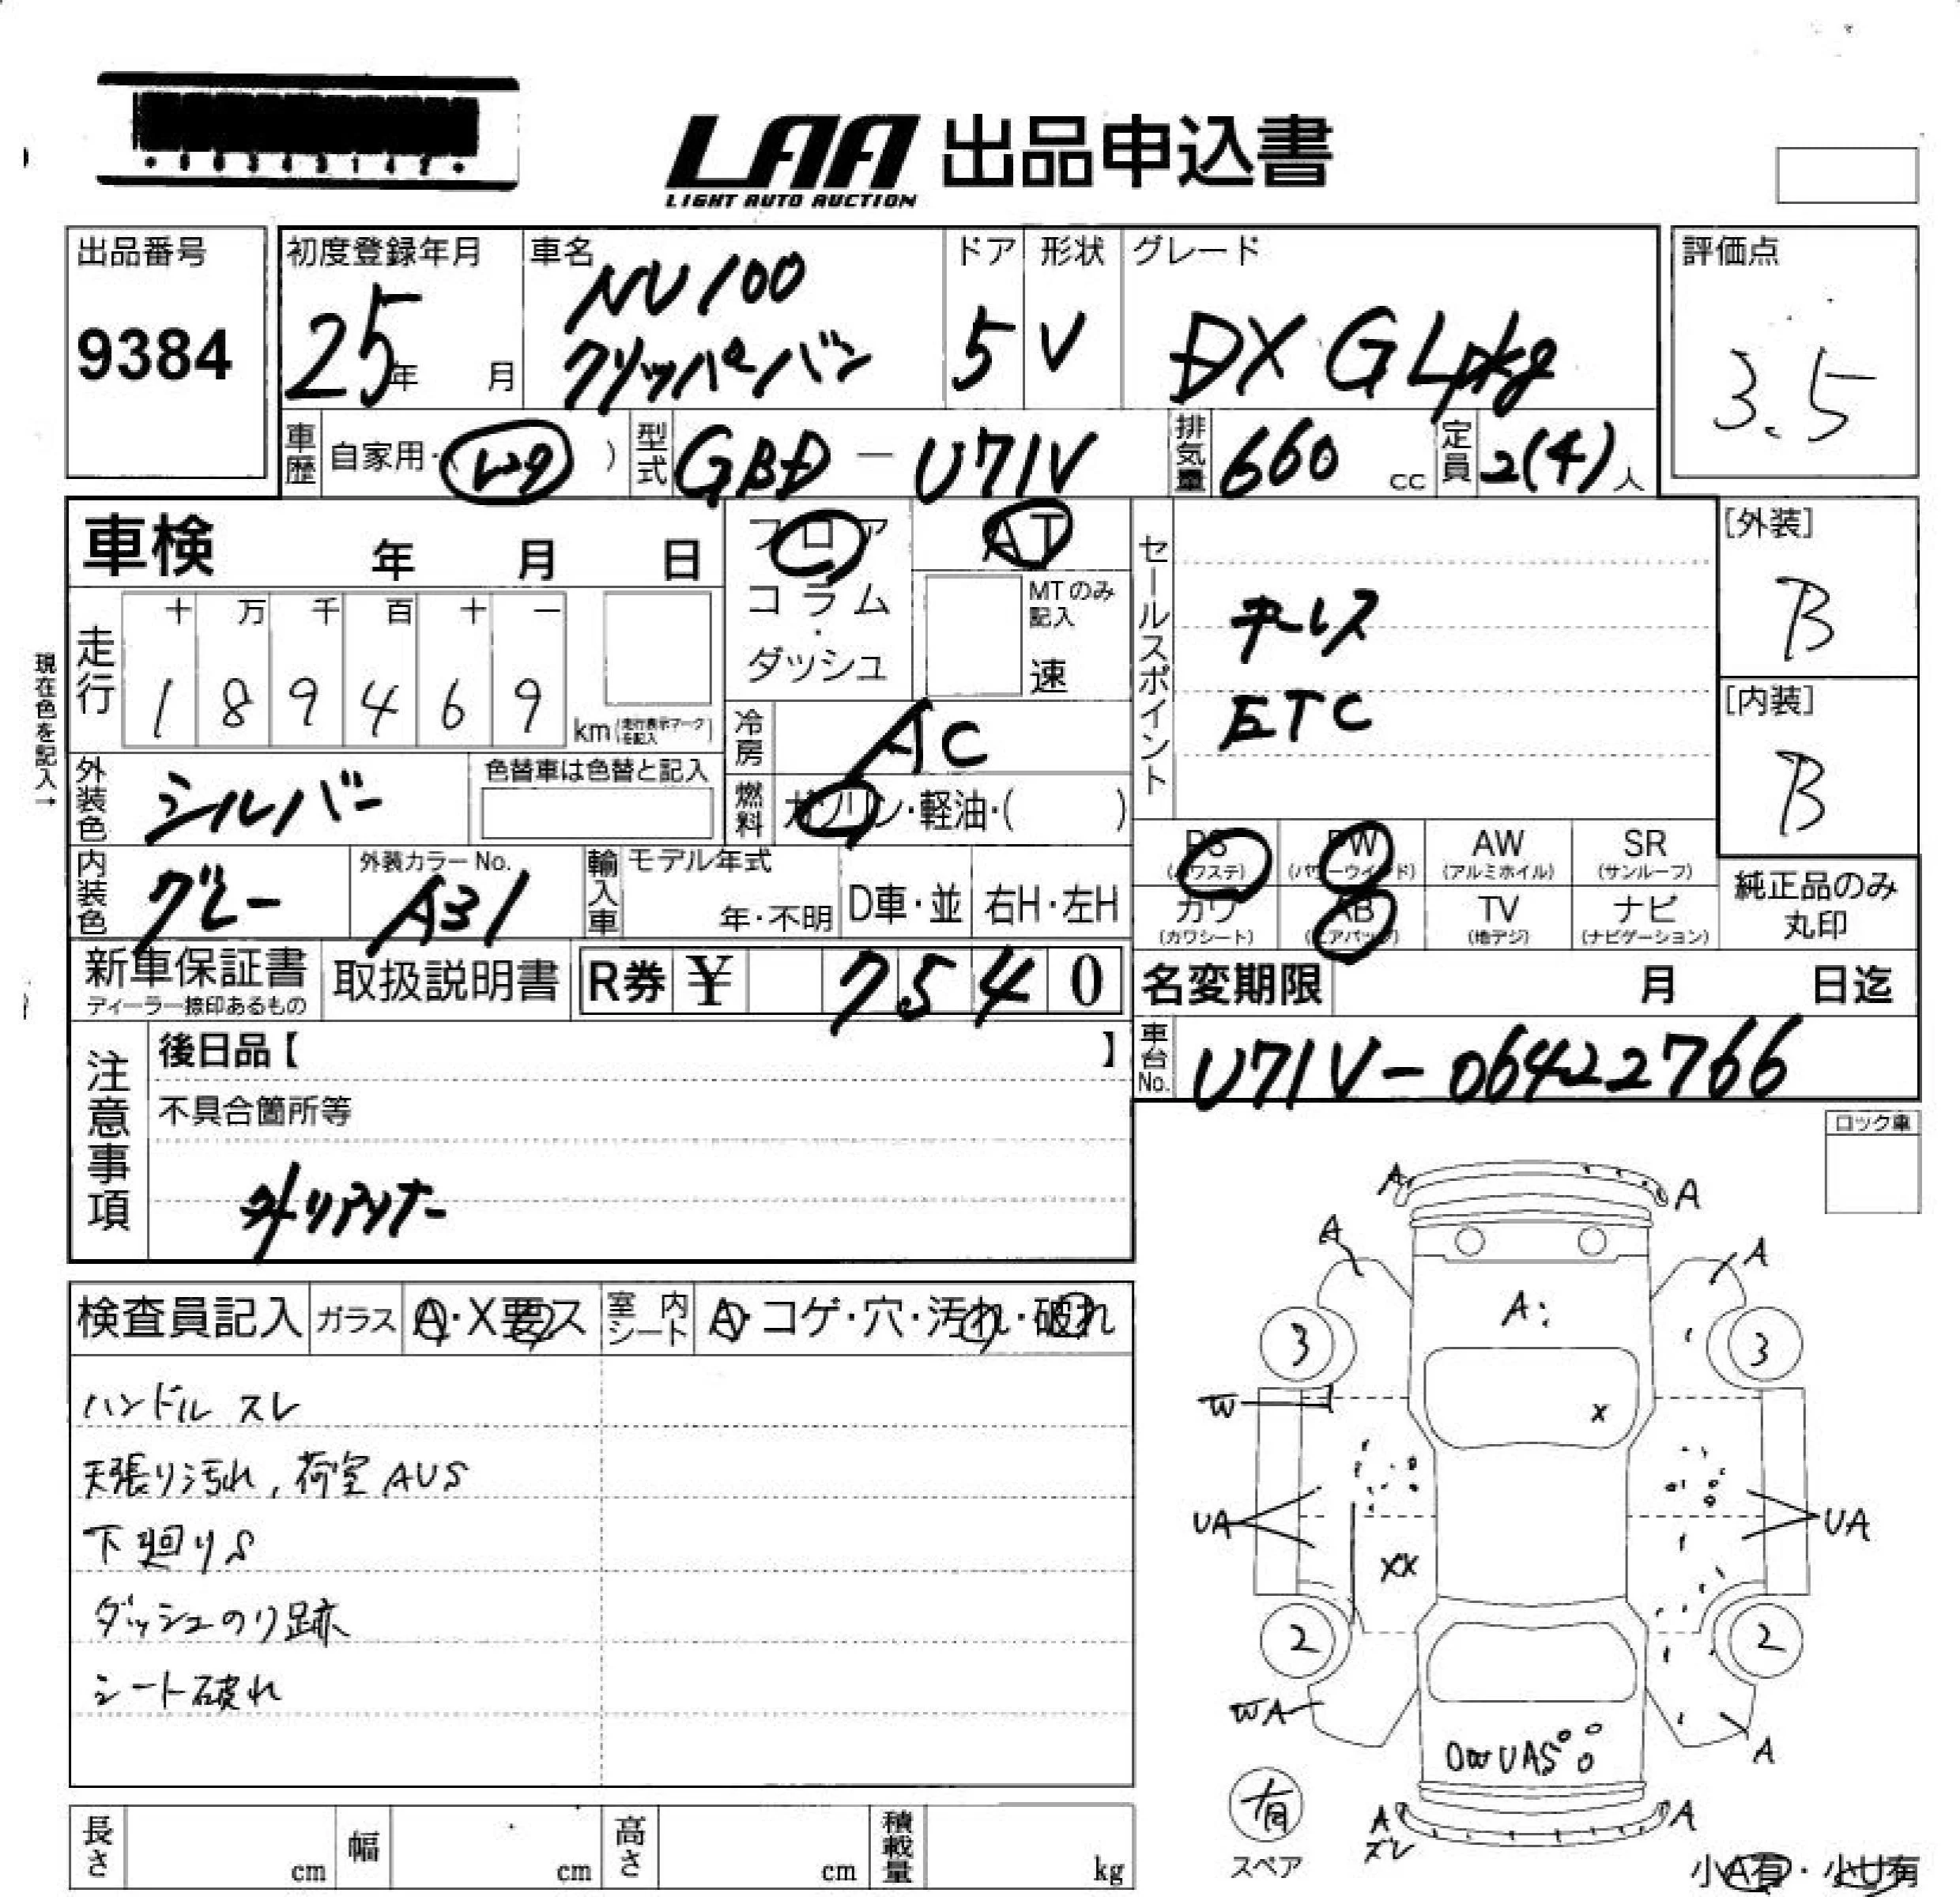 LAA 出品申込書
LIGHT AUTO AUCTION
出品番号
9384
初度登録年月
25年 月
車名
NV100
クリッパーバン
ドア
5
形状
V
グレード
DX GLpkg
評価点
3.5
車歴 自家用・( )
型式 GBD-U71V
排気量 660 cc
定員 2(4)人
車検 年 月 日
フロア
コラム
・
ダッシュ
AT
MTのみ記入
速
セールスポイント
キーレス
ETC
[外装]
B
[内装]
B
現在色を記入→
走行
十 万 千 百 十 一
1 8 9 4 6 9
km(走行表示マークを記入)
冷房 AC
燃料 ガソリン・軽油・( )
外装色 シルバー
色替車は色替と記入
内装色 グレー
外装カラーNo.
A31
輸入車 モデル年式
年・不明
D車・並
右H・左H
PS
(パワステ)
PW
(パワーウインド)
AW
(アルミホイル)
SR
(サンルーフ)
カワ
(カワシート)
AB
(エアバッグ)
TV
(地デジ)
ナビ
(ナビゲーション)
純正品のみ
丸印
新車保証書
ディーラー捺印あるもの
取扱説明書
R券 ¥ 7 5 4 0
名変期限 月 日迄
車台No. U71V-06422766
注意事項
後日品【 】
不具合箇所等
ロック車
検査員記入
ガラス A・X要ス
室内シート A・コゲ・穴・汚れ・破れ
ハンドル スレ
天張り汚れ, 荷室 AUS
下廻りS
ダッシュのり跡
シート破れ
A A
A A
A:
3 3
W
X
UA UA
XX
2 2
WA
A
UAS
有
スペア
A A
ズレ
小A有・小U有
長さ cm
幅 cm
高さ cm
積載量 kg